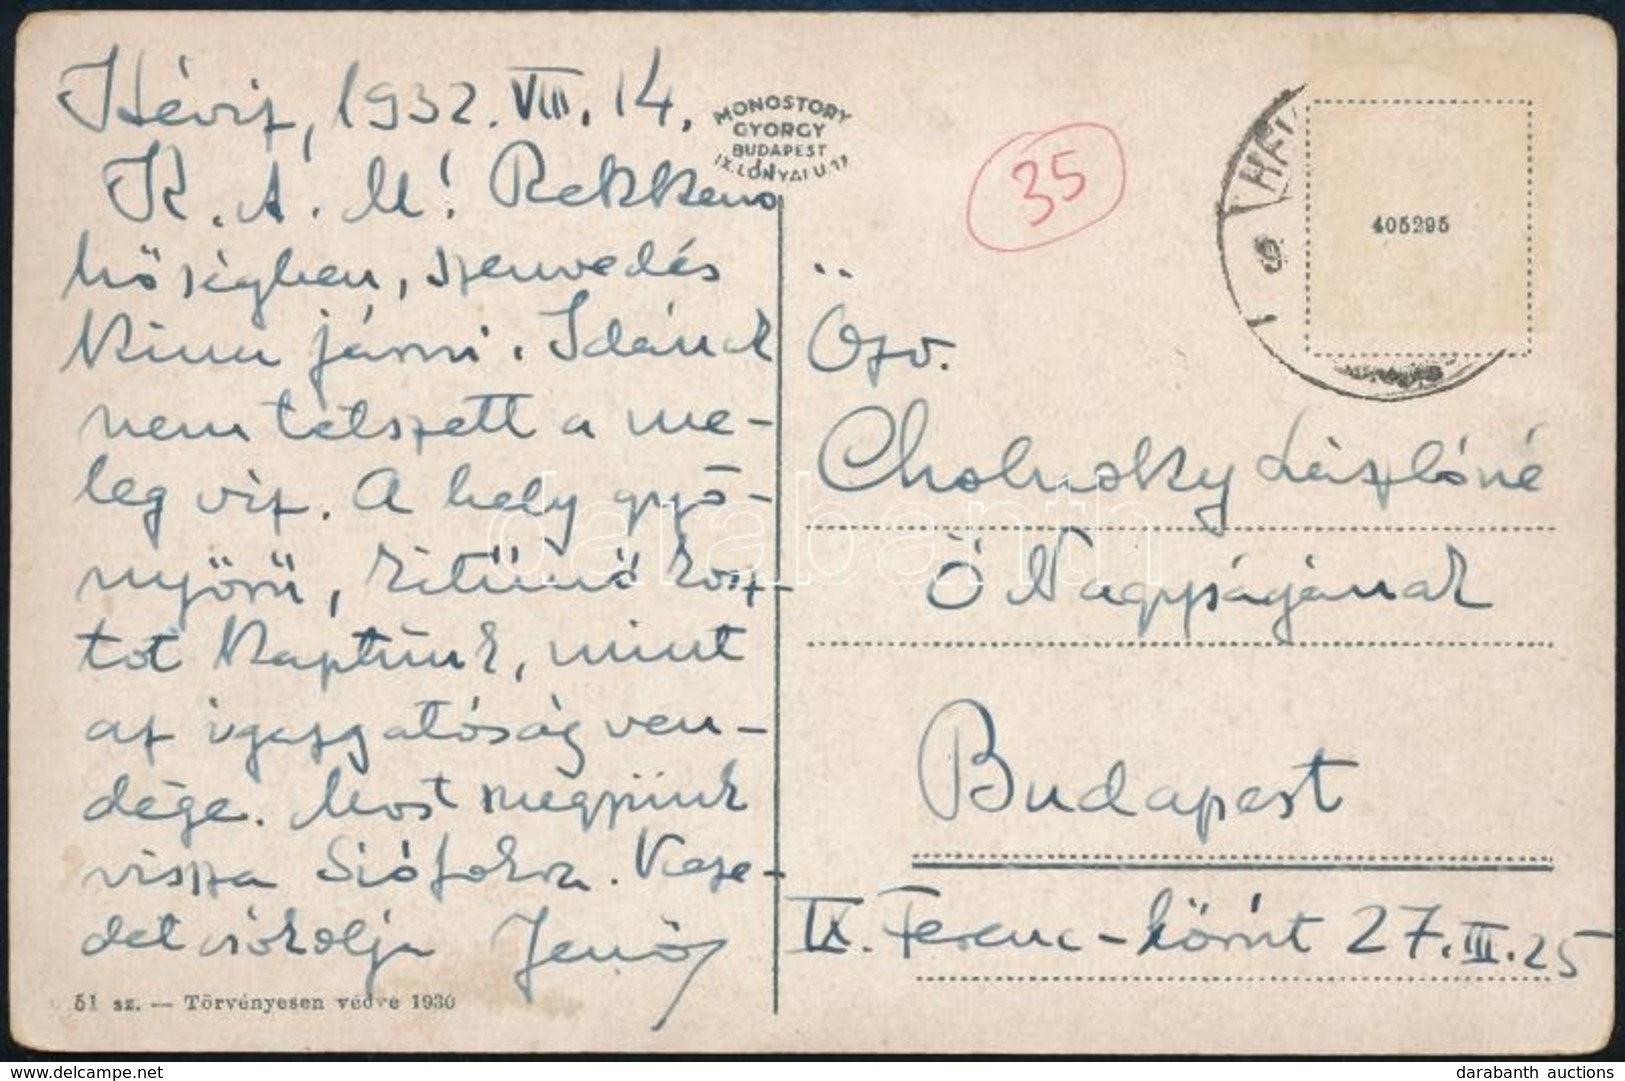 Hévíz, 1932. VIII. 14.
K. A. M! Rekkenő
hőségben, szenvedés
kinn járni. Idának
nem tetszett a me-
leg víz. A hely gyö-
nyörű, kitünő kosz-
tot kaptunk, mint
az igazgatóság ven-
dége. Most megyünk
vissza Siófokra. Keze-
det csókolja Jenő
51 sz. — Törvényesen védve 1930
MONOSTORY
GYÖRGY
BUDAPEST
IX. LÓNYAI U. 17
35
HÉV
405295
Özv.
Cholnoky Lászlóné
Ő Nagyságának
Budapest
IX. Ferenc-körút 27. III. 25
darabanth
darabanth auctions